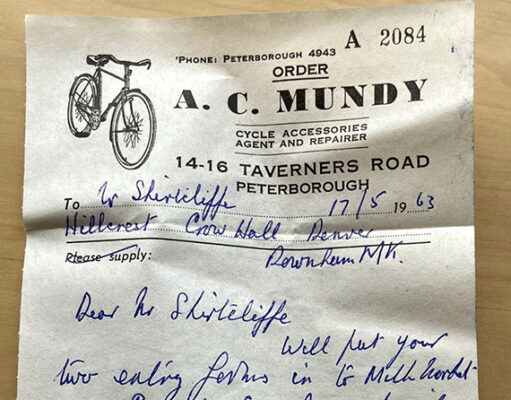 'PHONE: PETERBOROUGH 4943 A 2084
ORDER
A. C. MUNDY
CYCLE ACCESSORIES
AGENT AND REPAIRER
14-16 TAVERNERS ROAD
PETERBOROUGH
To W Shirtcliffe 17/5 1963
Hillcrest Crow Hall Denver
Please supply: Downham Mk.
Dear Mr Shirtcliffe
Will put your
two in to